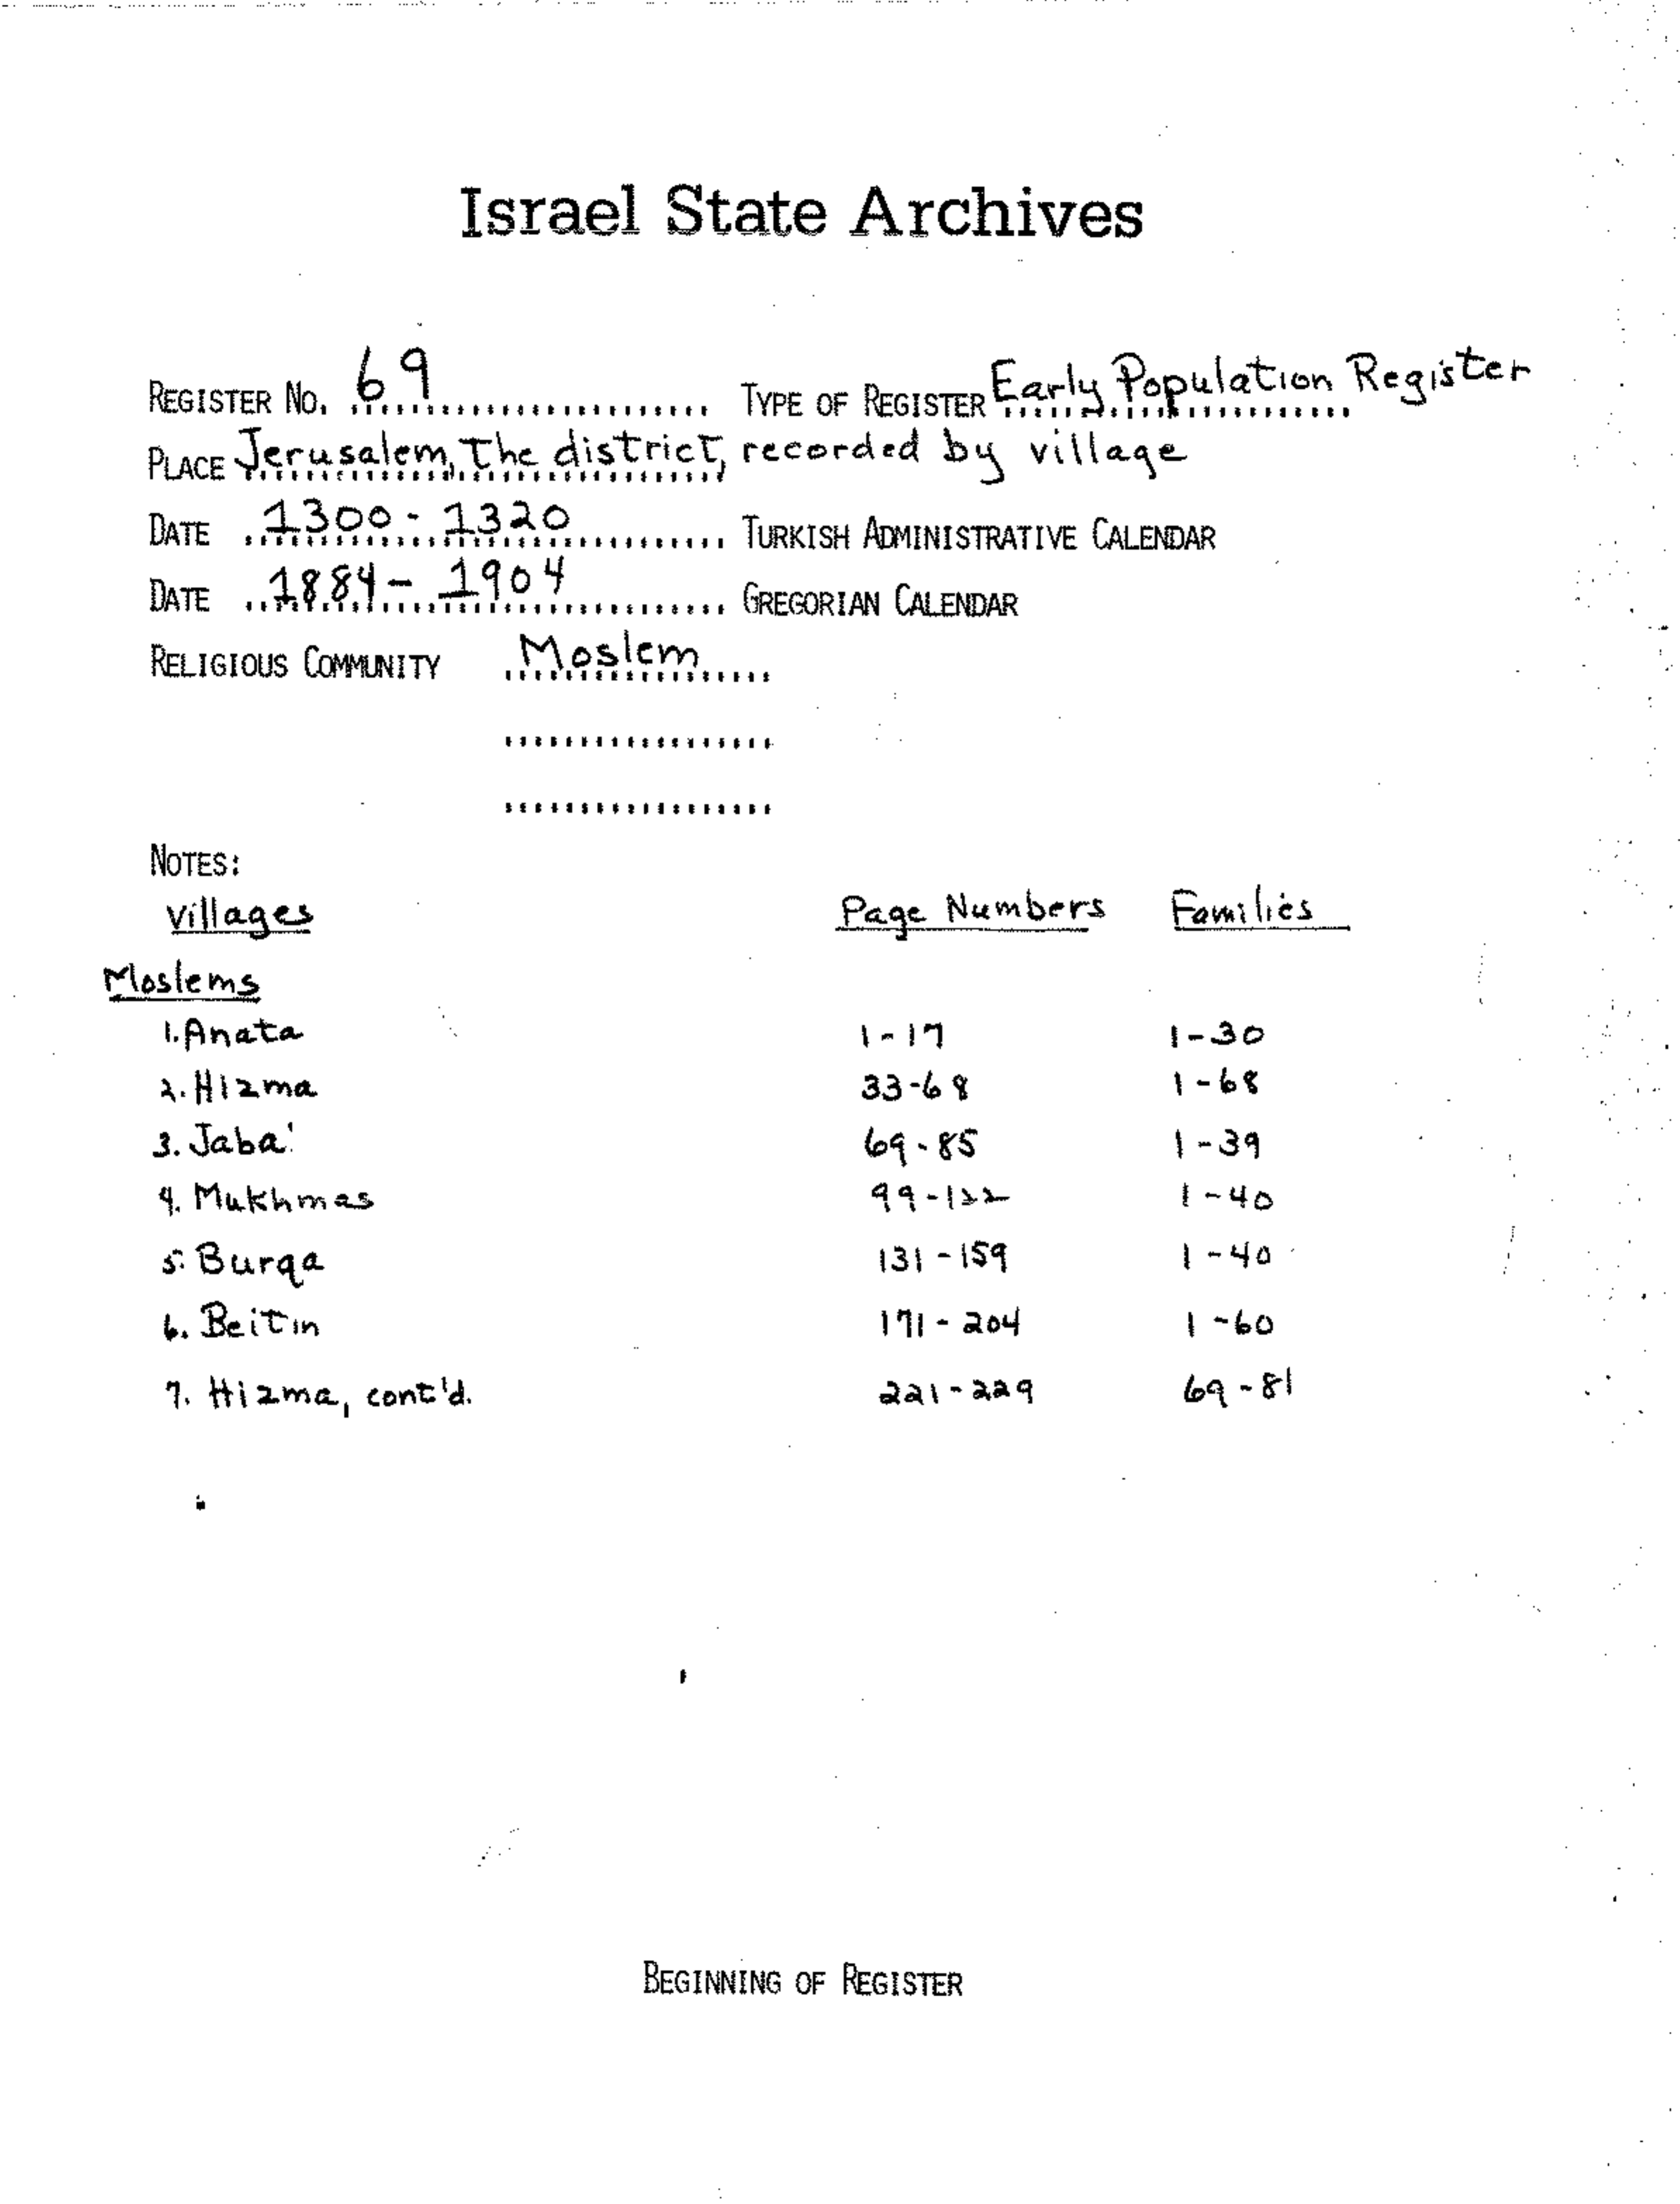 Israel State Archives
REGISTER NO. 69 TYPE OF REGISTER Early Population Register
PLACE Jerusalem, The district, recorded by village
DATE 1300 - 1320 TURKISH ADMINISTRATIVE CALENDAR
DATE 1884 - 1904 GREGORIAN CALENDAR
RELIGIOUS COMMUNITY Moslem
NOTES:
Villages Page Numbers Families
Moslems
1. Anata 1-17 1-30
2. Hizma 33-68 1-68
3. Jaba' 69-85 1-39
4. Mukhmas 99-122 1-40
5. Burqa 131-159 1-40
6. Beitin 171-204 1-60
7. Hizma, cont'd. 221-229 69-81
BEGINNING OF REGISTER